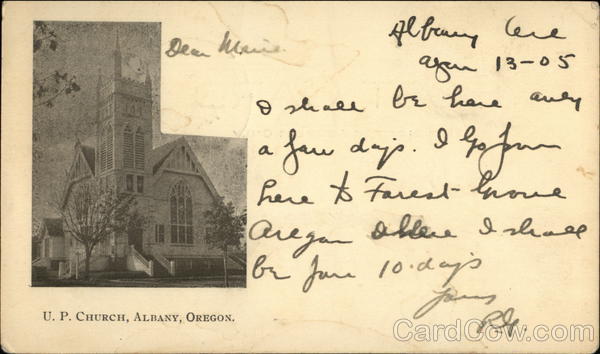 Dear Marie
Albany Ore
Apr 13-05
I shall be here only
a few days. I go from
here to Forest Grove
Oregon where I shall
be for 10 days
Yours
U. P. Church, Albany, Oregon.
CardCow.com